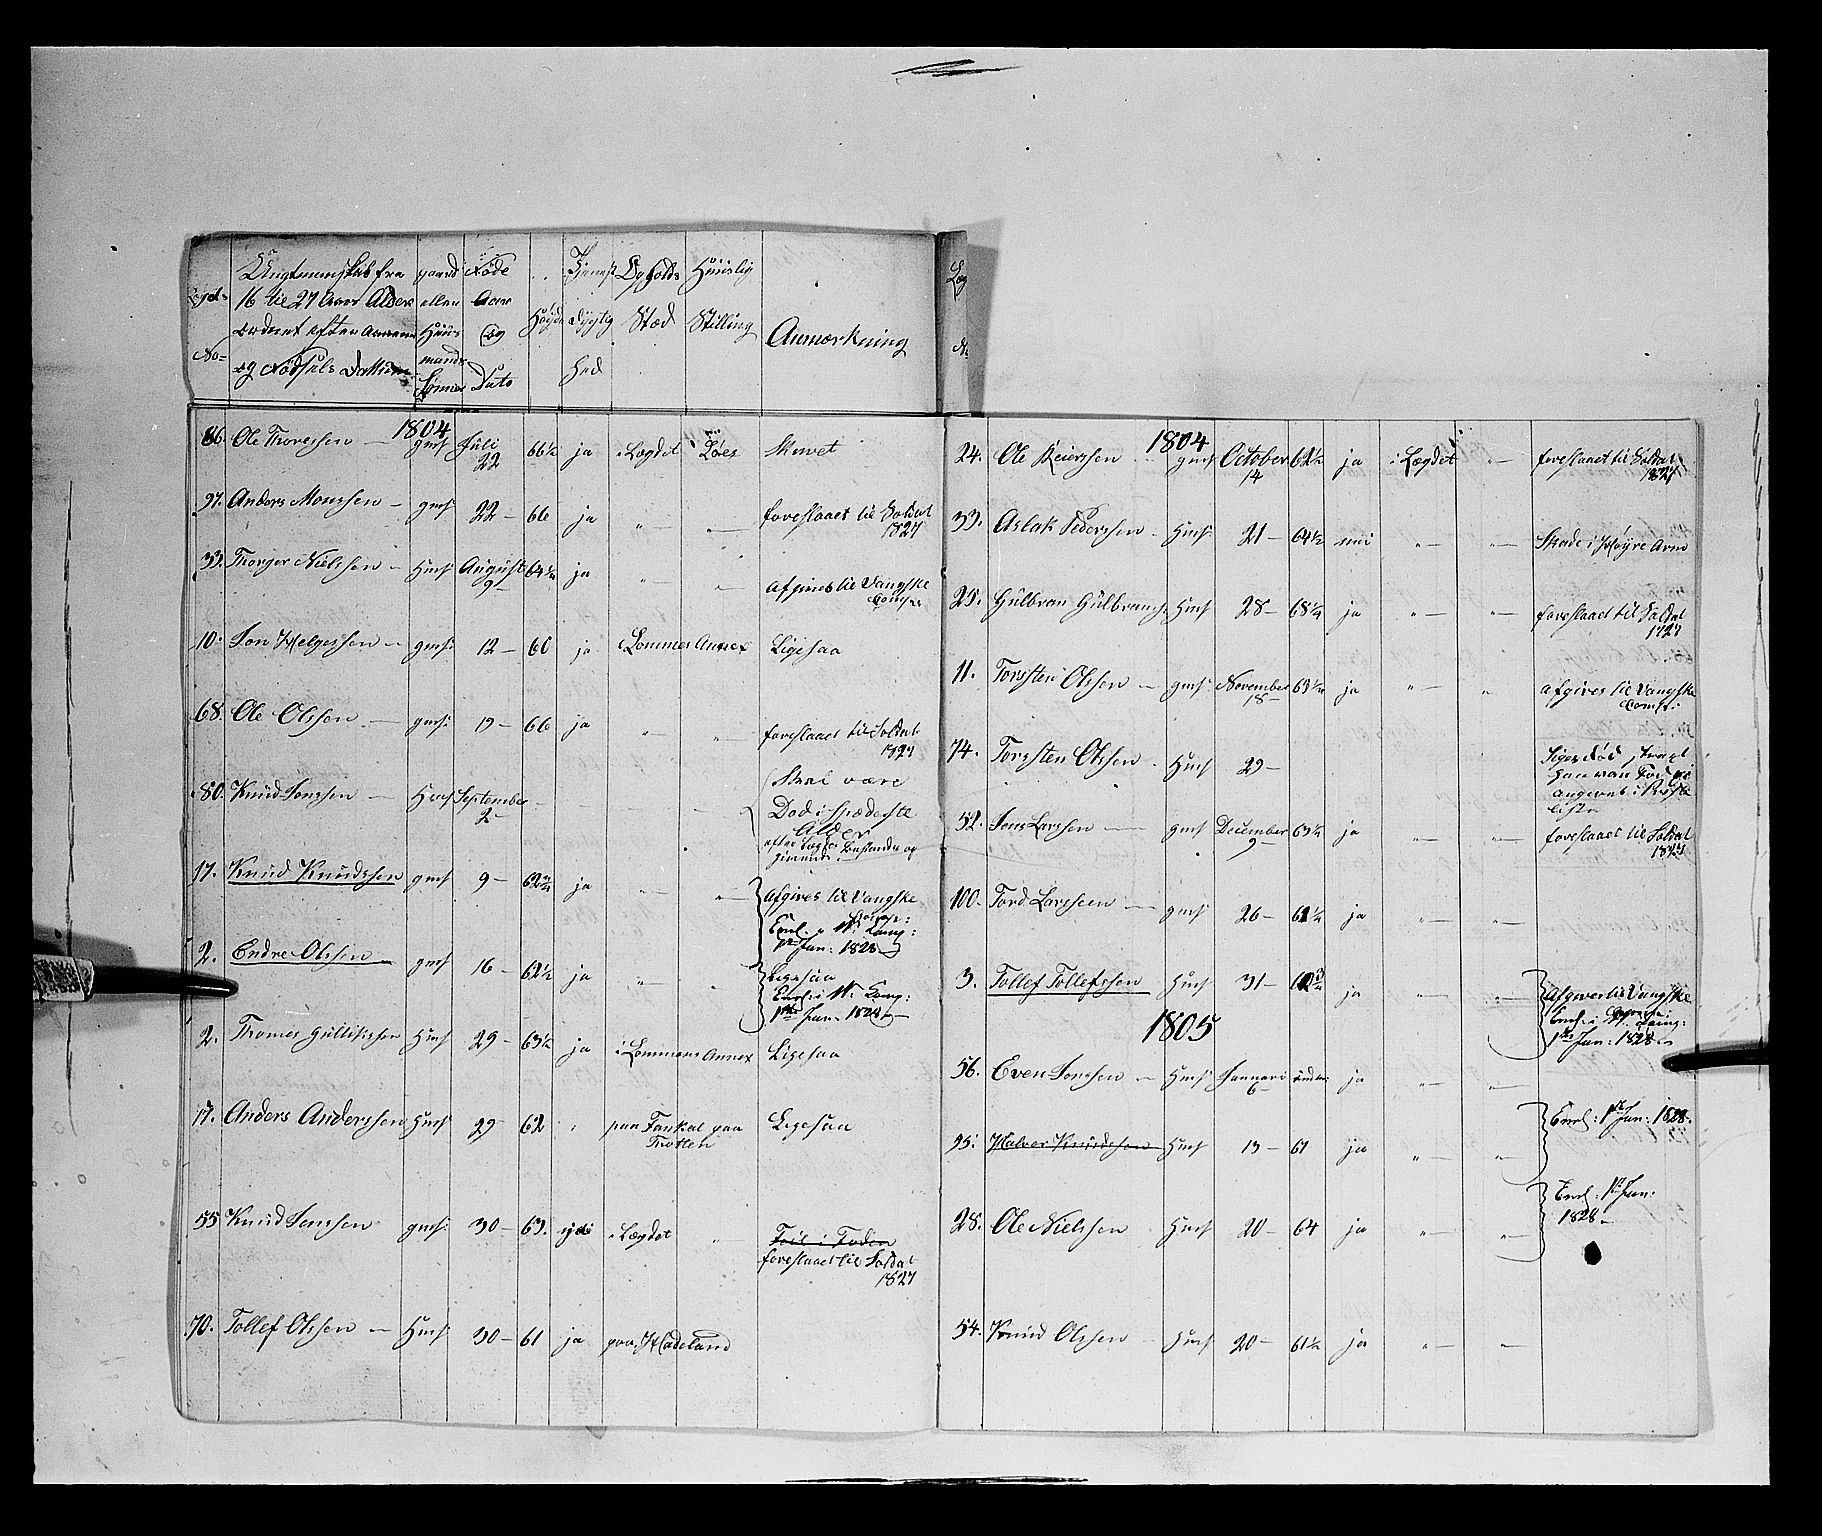 Lægd- No-
Ungtmandskab fra 16 til 27 Aars Alder ordnet efter Aarene og Fødsels Datum
gaard eller Huus mands Sønner
Føde Aar og Dato
Høyde
Tjeneste Dygtig hed
Opholds Stæd
Huuslig Stilling
Anmærkning
1804
86. Ole Thoressen — gmS Juli 22 66½ ja i Lægdet Løes
97. Anders Monssen — gmS 22 — 66 ja „— „— foreslaaet til Soldat 1827
33. Thorger Nielssen — HmS August 9— 64¼ ja „— „— afgives til Vangske Comp:
10. Jon Helgessen — gmS: 12 — 66 ja Lommes Annex Ligesaa
68. Ole Olssen — gmS: 19 — 66 ja „— „— foreslaaet til Soldat 1827
80. Knud Jonssen — HmS September 2— Skal være
Død i Spædeste
Alder
17. Knud Knudssen gmS 9 — 62¾ ja „— „— afgives til Vangske
Comp:
Enrl. i W: Comp:
1ste Jan: 1828 —
2. Endre Olssen — gmS 16 — 62½ ja „— „ Ligesaa
Enrl: i W: Comp:
1ste Jan. 1828 —
2. Thomes Gullikssen HmS 29 — 63½ ja i Lommens Annex Ligesaa
17. Anders Anderssen HmS 29 — 62 „ paa Fankal paa Thotten Ligesaa
55 Knud Jonssen gmS: 30 — 63. i Lægdet „ foreslaaet til Soldat 1827
70. Tollef Olssen — HmS 30 — 61 ja paa Hadeland
Læg
No
1804
24. Ole Reierssen — gmS October 14 62½ ja i Lægdet „— foreslaaet til Soldat 1827
33. Aslak Pederssen — HmS: 21 — 64½ nei „— „— Skade i Høyre Arm
25. Gulbran Gulbransen: HmS 28 — 68¼ ja „— „— foreslaaet til Soldat 1827
11. Torsten Olssen — gmS: November 18 — 63¼ ja „— „ afgives til Vangske Comp:
74. Torsten Olssen — HmS 29 —
52. Jens Larssen — gmS December 9— 63¼ ja „— „— foreslaaet til Soldat 1827
100. Tord Larsseen — gmS 26 — 62¼ ja „— „—
3. Tollef Tollefssen HmS 31 — 62¾ ja „— „— Afgives til Vangske
Comp:
Enrl. i W. Comp:
1ste Jan: 1828 —
1805
56. Even Jonssen — HmS Januari 6— under ja „— „—
95. Halvor Knudssen HmS 13 — 61 ja „— „— Enrl: 1ste Jan: 1828.
28. Ole Nielssen HmS 20 — 64 ja „— „— Enrl: 1ste Jan:
1828 —
54. Knud Olssen — HmS 20 — 61½ ja „— „—